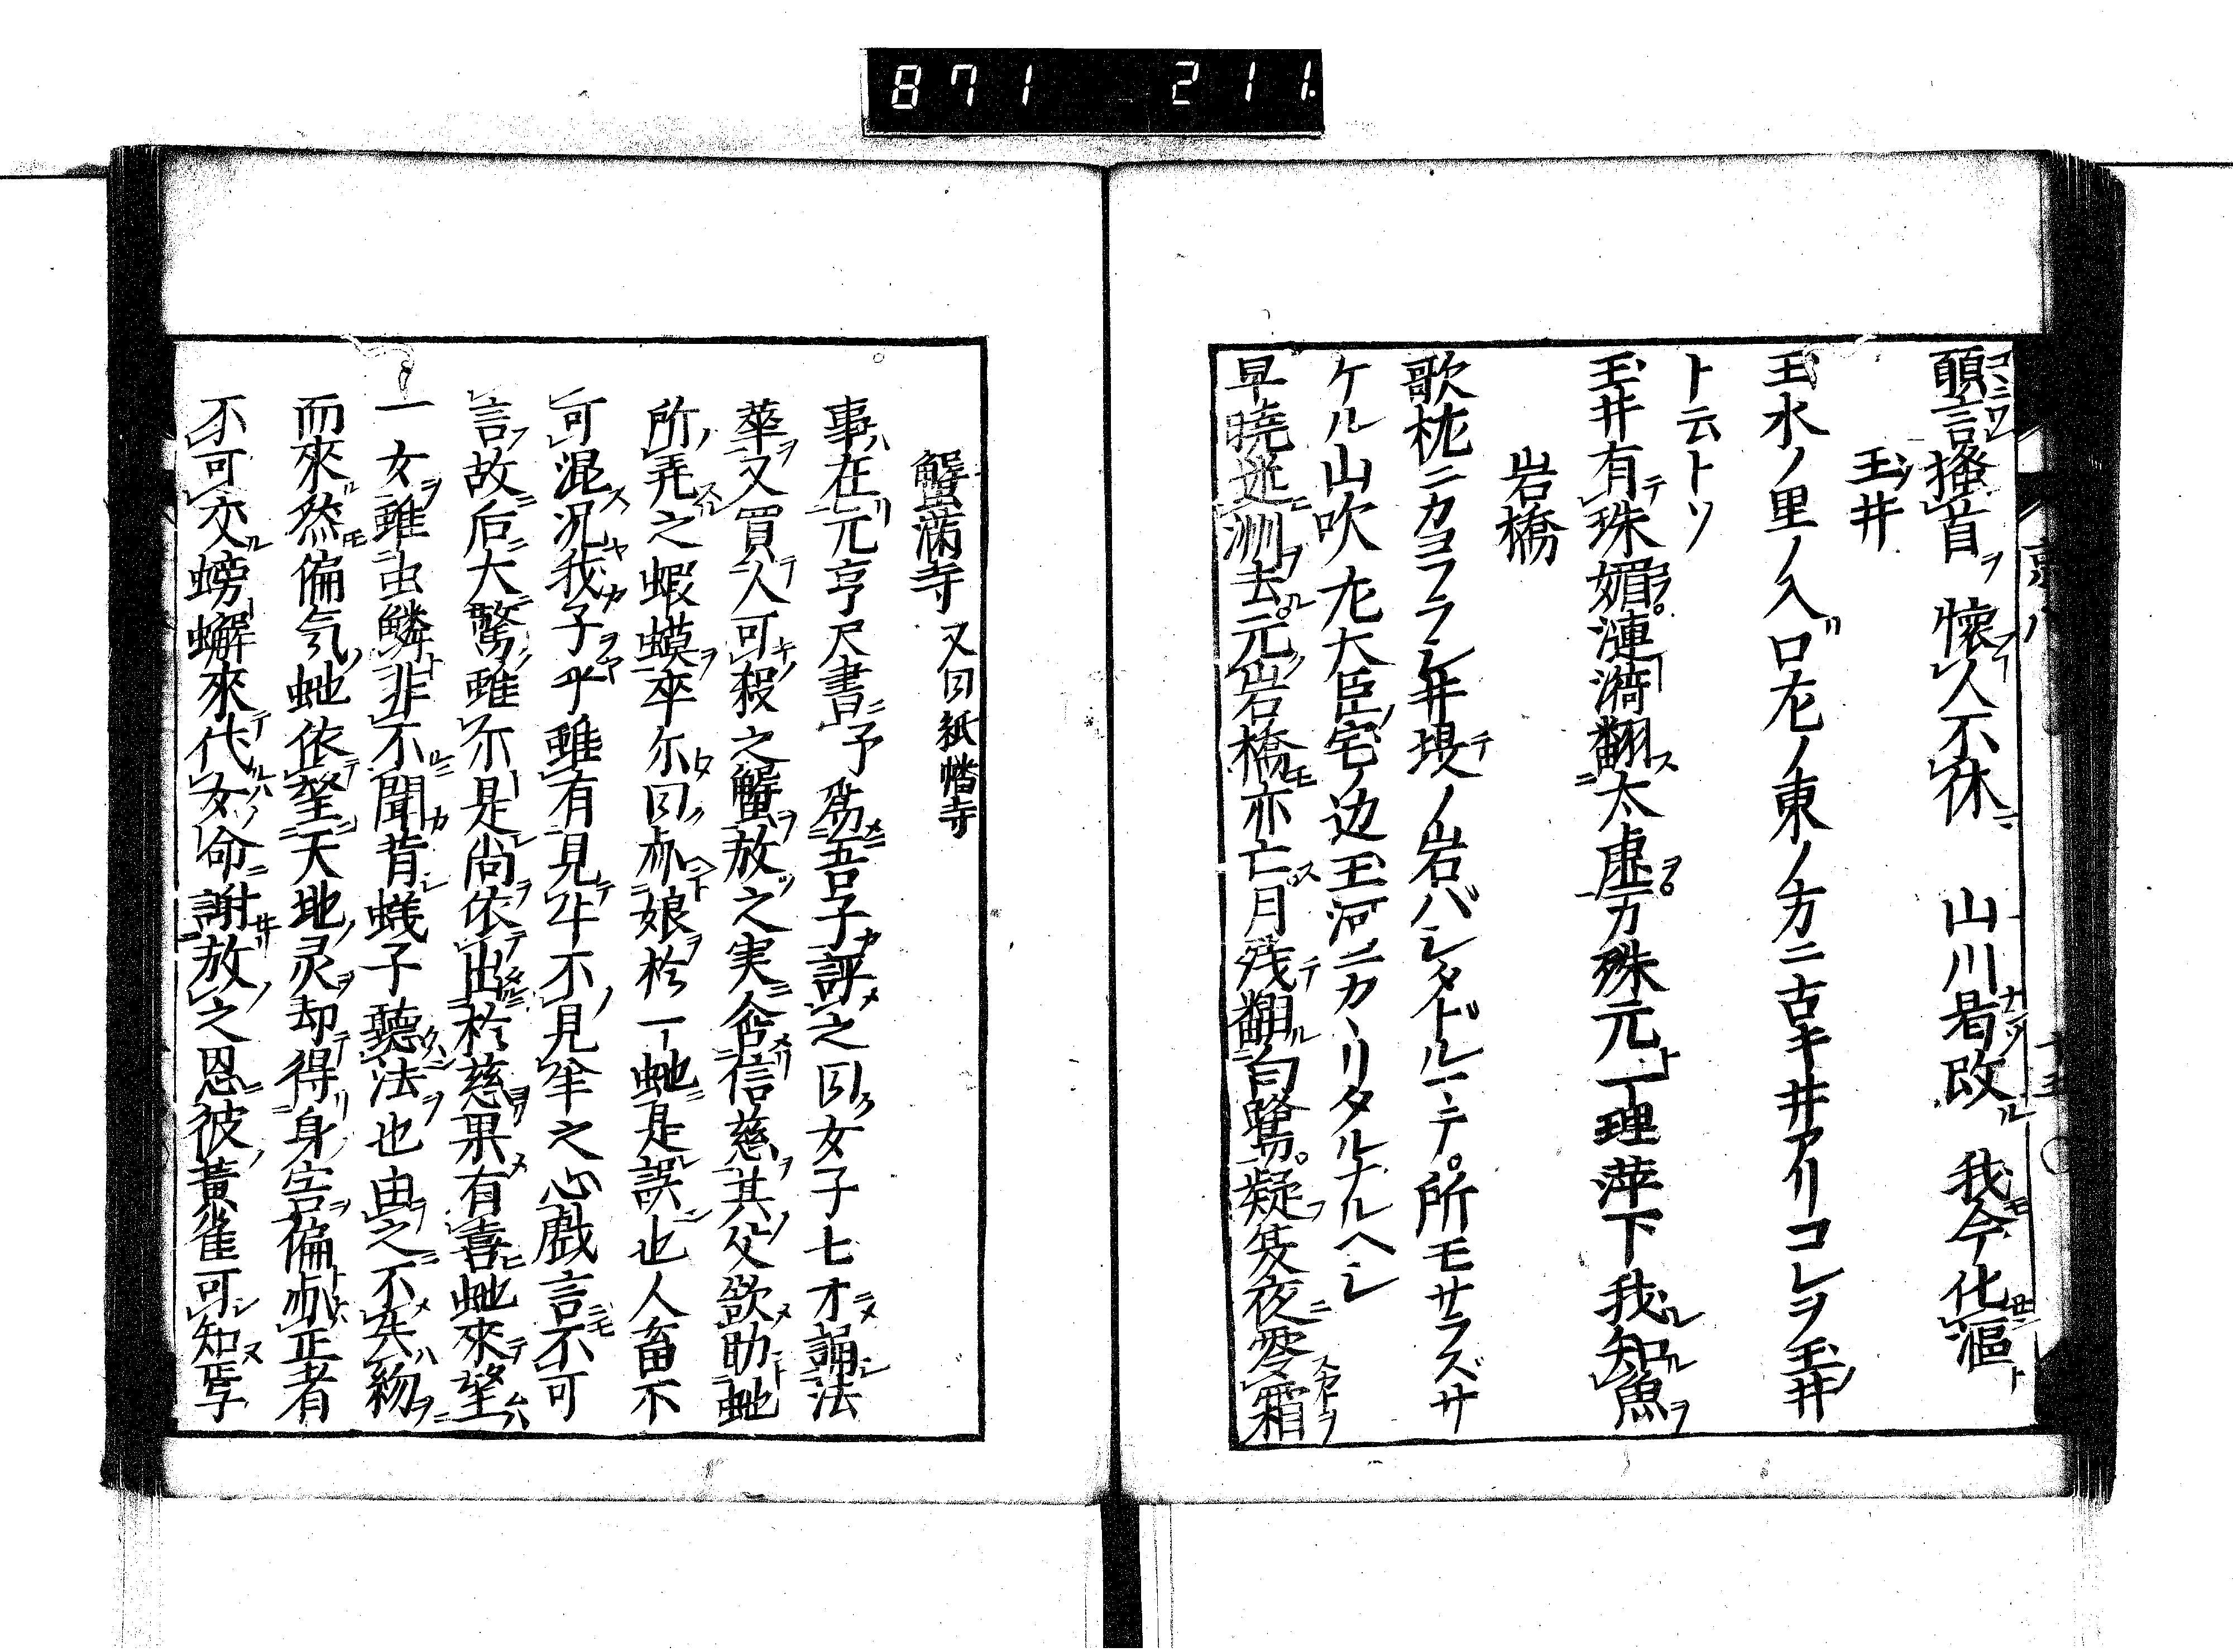 871 211
願言掻首 懐人不休 山川若改 我今化漚
玉井
玉水ノ里ノ入口左ノ東ノ方ニ古キ井アリコレヲ玉井
ト云トソ
玉井有珠媚漣漪翻太虚万殊元一理萍下我知魚
岩橋
歌枕ニカコフラシ井堤ノ岩バシタドル〳〵テ所モサラズサ
ケル山吹左大臣宅ノ辺玉河ニカヽリタルナルヘシ
早暁逃渕去元岩橋亦亡月残翻白鷺疑是夜零霜
蟹満寺 又曰紙幡寺
事在元亨尺書予為吾子評之曰女子七才誦法
華又買人可殺之蟹放之実合信慈其父欲助蛇
所呑之蝦蟆卒尓曰赤娘於一蛇是誤也人畜不
可混况我子乎雖有見牛不見羊之心戯言不可
言故后大驚雖尓是尚依出於慈果有喜蛇來望
一女雖虫鱗非不聞背蟻子聽法也由之不失約
而來然偏気蛇依望天地灵却得身害偏亦正者
不可交螃蠏來代女命謝放之恩彼黄雀可知焉